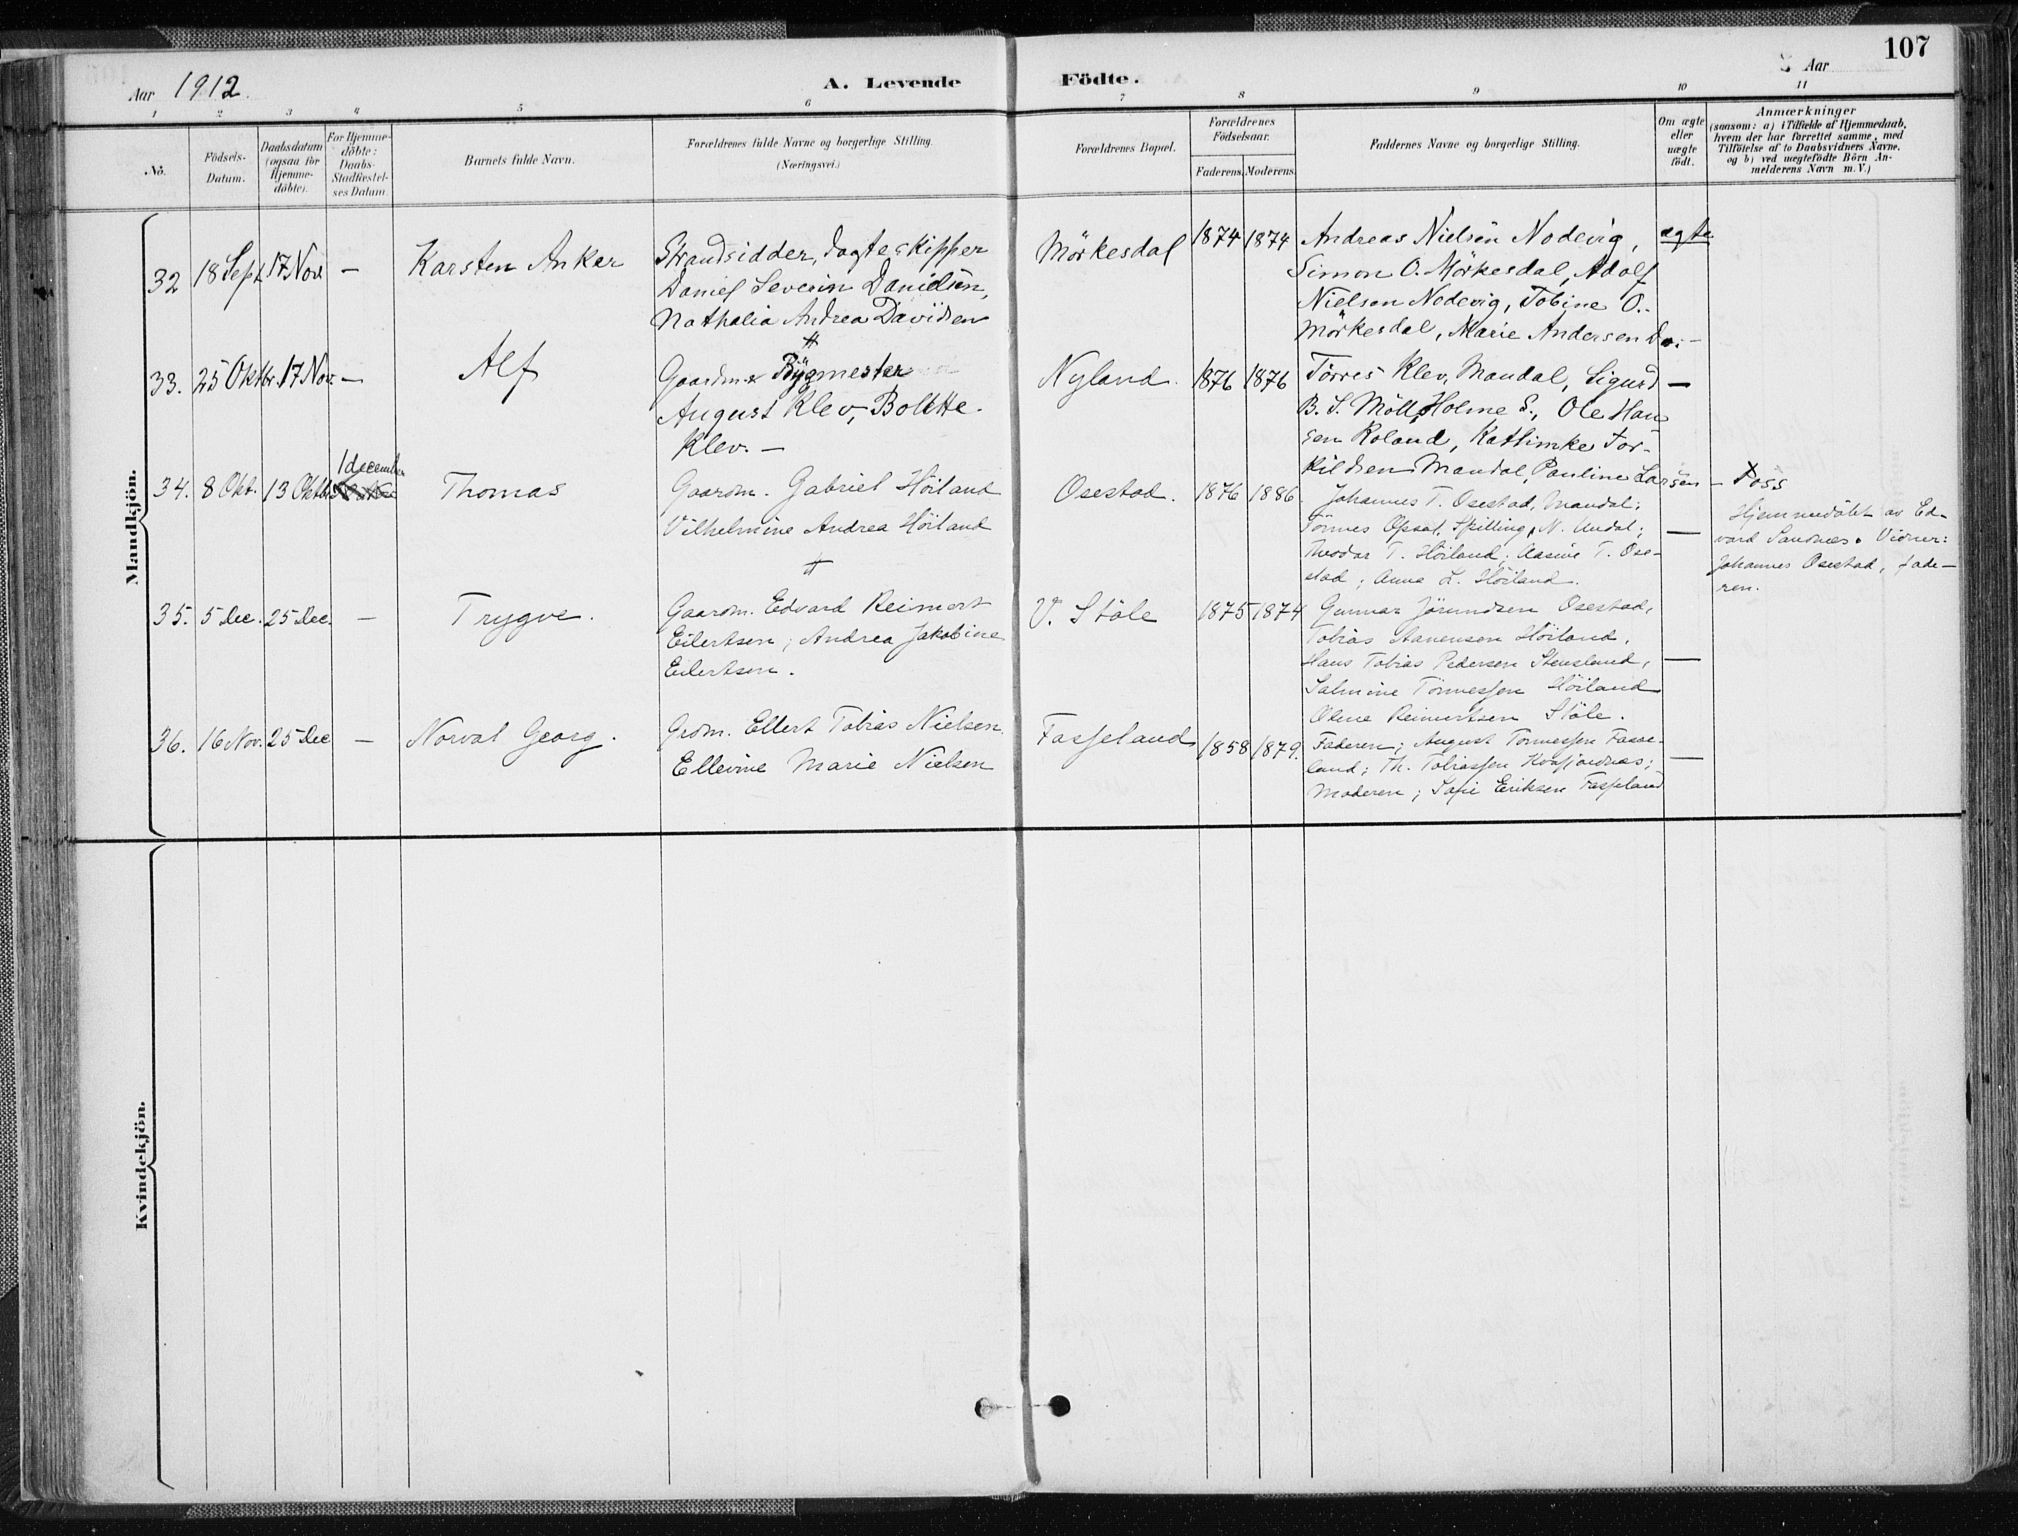 107
Aar 1912.
A. Levende Födte.
Aar
1 2 3 4 5 6 7 8 9 10 11
No.
Födsels-Datum.
Daabsdatum (ogsaa for Hjemme-döbte).
For Hjemme-döbte: Daabs-Stadfæstel-ses Datum.
Barnets fulde Navn.
Forældrenes fulde Navne og borgerlige Stilling. (Næringsvei.)
Forældrenes Bopæl.
Forældrenes Födselsaar.
Faderens. Moderens.
Faddernes Navne og borgerlige Stilling.
Om ægte eller uægte födt.
Anmærkninger
(saasom: a) i Tilfælde af Hjemmedaab,
hvem der har forrettet samme, med
Tilföielse af to Daabsvidners Navne,
og b) ved uægtefödte Börn An-
melderens Navn m. V.)
Mandkjön.
32 18 Sept. 17 Nov. — Karsten Anker
Strandsidder, Jagteskipper
Daniel Severin Danielsen,
Nathalia Andrea Davidsen
Mörkesdal 1874 1874
Andreas Nielsen Nodevig,
Simon O. Mörkesdal, Adolf
Nielsen Nodevig, Tobine O.
Mörkesdal, Marie Andersen Do. —
ægte
33. 25 Oktbr. 17 Nov. — Alf
Gaardm. Bygmester
August Klev, Bolette
Klev. —
Nyland. 1876 1876
Törres Klev, Mandal, Sigurd
B. S. Möll, Holme S., Ole Han
sen Roland, Kathinke Tor-
kildsen Mandal, Pauline Larsen Foss
—
34. 8 Okt. 13 Oktbr. 1 december Thomas
Gaardm. Gabriel Höiland
Vilhelmine Andrea Höiland
Osestad. 1876 1886.
Johannes T. Osestad, Mandal;
Tönnes Opsal, Spilling, N. Audal;
Theodor T. Höiland; Aasine T. Ose-
stad; Anna L. Höiland.
—
Hjemmedöbt av Ed-
vard Sandnæs. Vidner:
Johannes Osestad, fade-
ren.
35. 5 Dec. 25 Dec. — Trygve.
Gaardm. Edvard Reimert
Eilertsen; Andrea Jakobine
Eilertsen.
V. Stöle 1875 1874
Gunnar Jörundsen Osestad,
Tobias Aanensen Höiland,
Hans Tobias Pedersen Stensland,
Salmine Tönnessen Höiland
Oline Reimertsen Stöle.
—
36. 16 Nov. 25 Dec — Norval Georg.
Grdm. Ellert Tobias Nielsen.
Ellevine Marie Nielsen
Fasseland 1858 1879.
Faderen; August Tönnessen Fasse-
land; Th. Tobiassen Kvafjordnæs;
Moderen; Sofie Eriksen Fasseland
—
Kvindekjön.